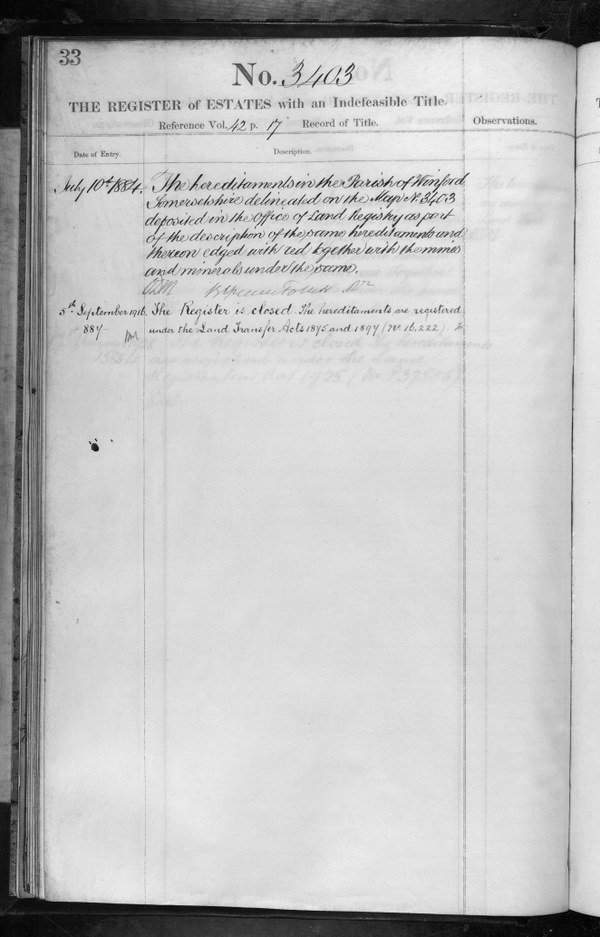 33
No. 3403
THE REGISTER of ESTATES with an Indefeasible Title.
Reference Vol. 42 p. 17 Record of Title.
Observations.
Date of Entry.
Description.
July 10th 1884. The hereditaments in the Parish of Winford
Somersetshire delineated on the Map No. 3403
deposited in the Office of Land Registry as part
of the description of the same hereditaments and
thereon edged with red together with the mines
and minerals under the same.
5th September 1916. The Register is closed. The hereditaments are registered
887 under the Land Transfer Acts 1875 and 1897 (No. 16.222).